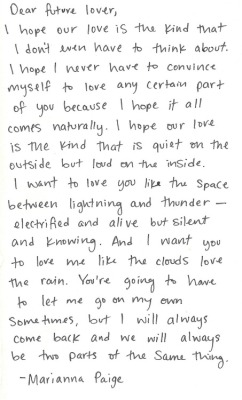 Dear future lover,
I hope our love is the kind that
I don't even have to think about.
I hope I never have to convince
myself to love any certain part
of you because I hope it all
comes naturally. I hope our love
is the kind that is quiet on the
outside but loud on the inside.
I want to love you like the space
between lightning and thunder —
electrified and alive but silent
and knowing. And I want you
to love me like the clouds love
the rain. You're going to have
to let me go on my own
sometimes, but I will always
come back and we will always
be two parts of the same thing.
-Marianna Paige